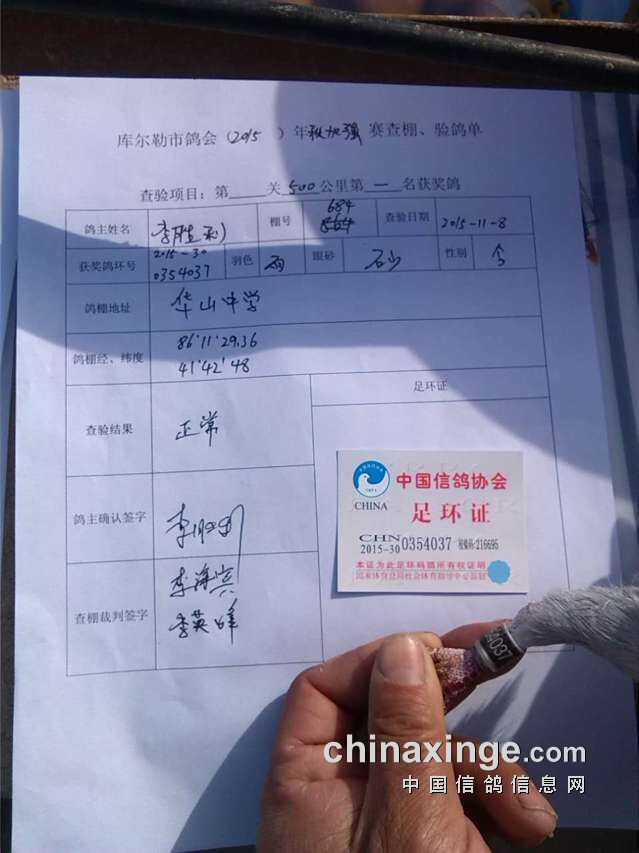 库尔勒市鸽会（2015）年秋加强赛查棚、验鸽单
查验项目：第____关 500公里第 一 名获奖鸽
鸽主姓名 李胜利 棚号 684 查验日期 2015-11-8
获奖鸽环号 2015-30 0354037 羽色 雨 眼砂 石少 性别 合
鸽棚地址 华山中学
鸽棚经、纬度 86'11'29.36
41'42'48
足环证
查验结果 正常
鸽主确认签字 李胜利
查棚裁判签字 李海宾
李英峰
CHINA
中国信鸽协会
足环证
CHN
2015-30 0354037 密码:216695
本证为此足环鸽拥有权证明
国家体育总局社会体育指导中心监制
4037
chinaxinge.com
中国信鸽信息网